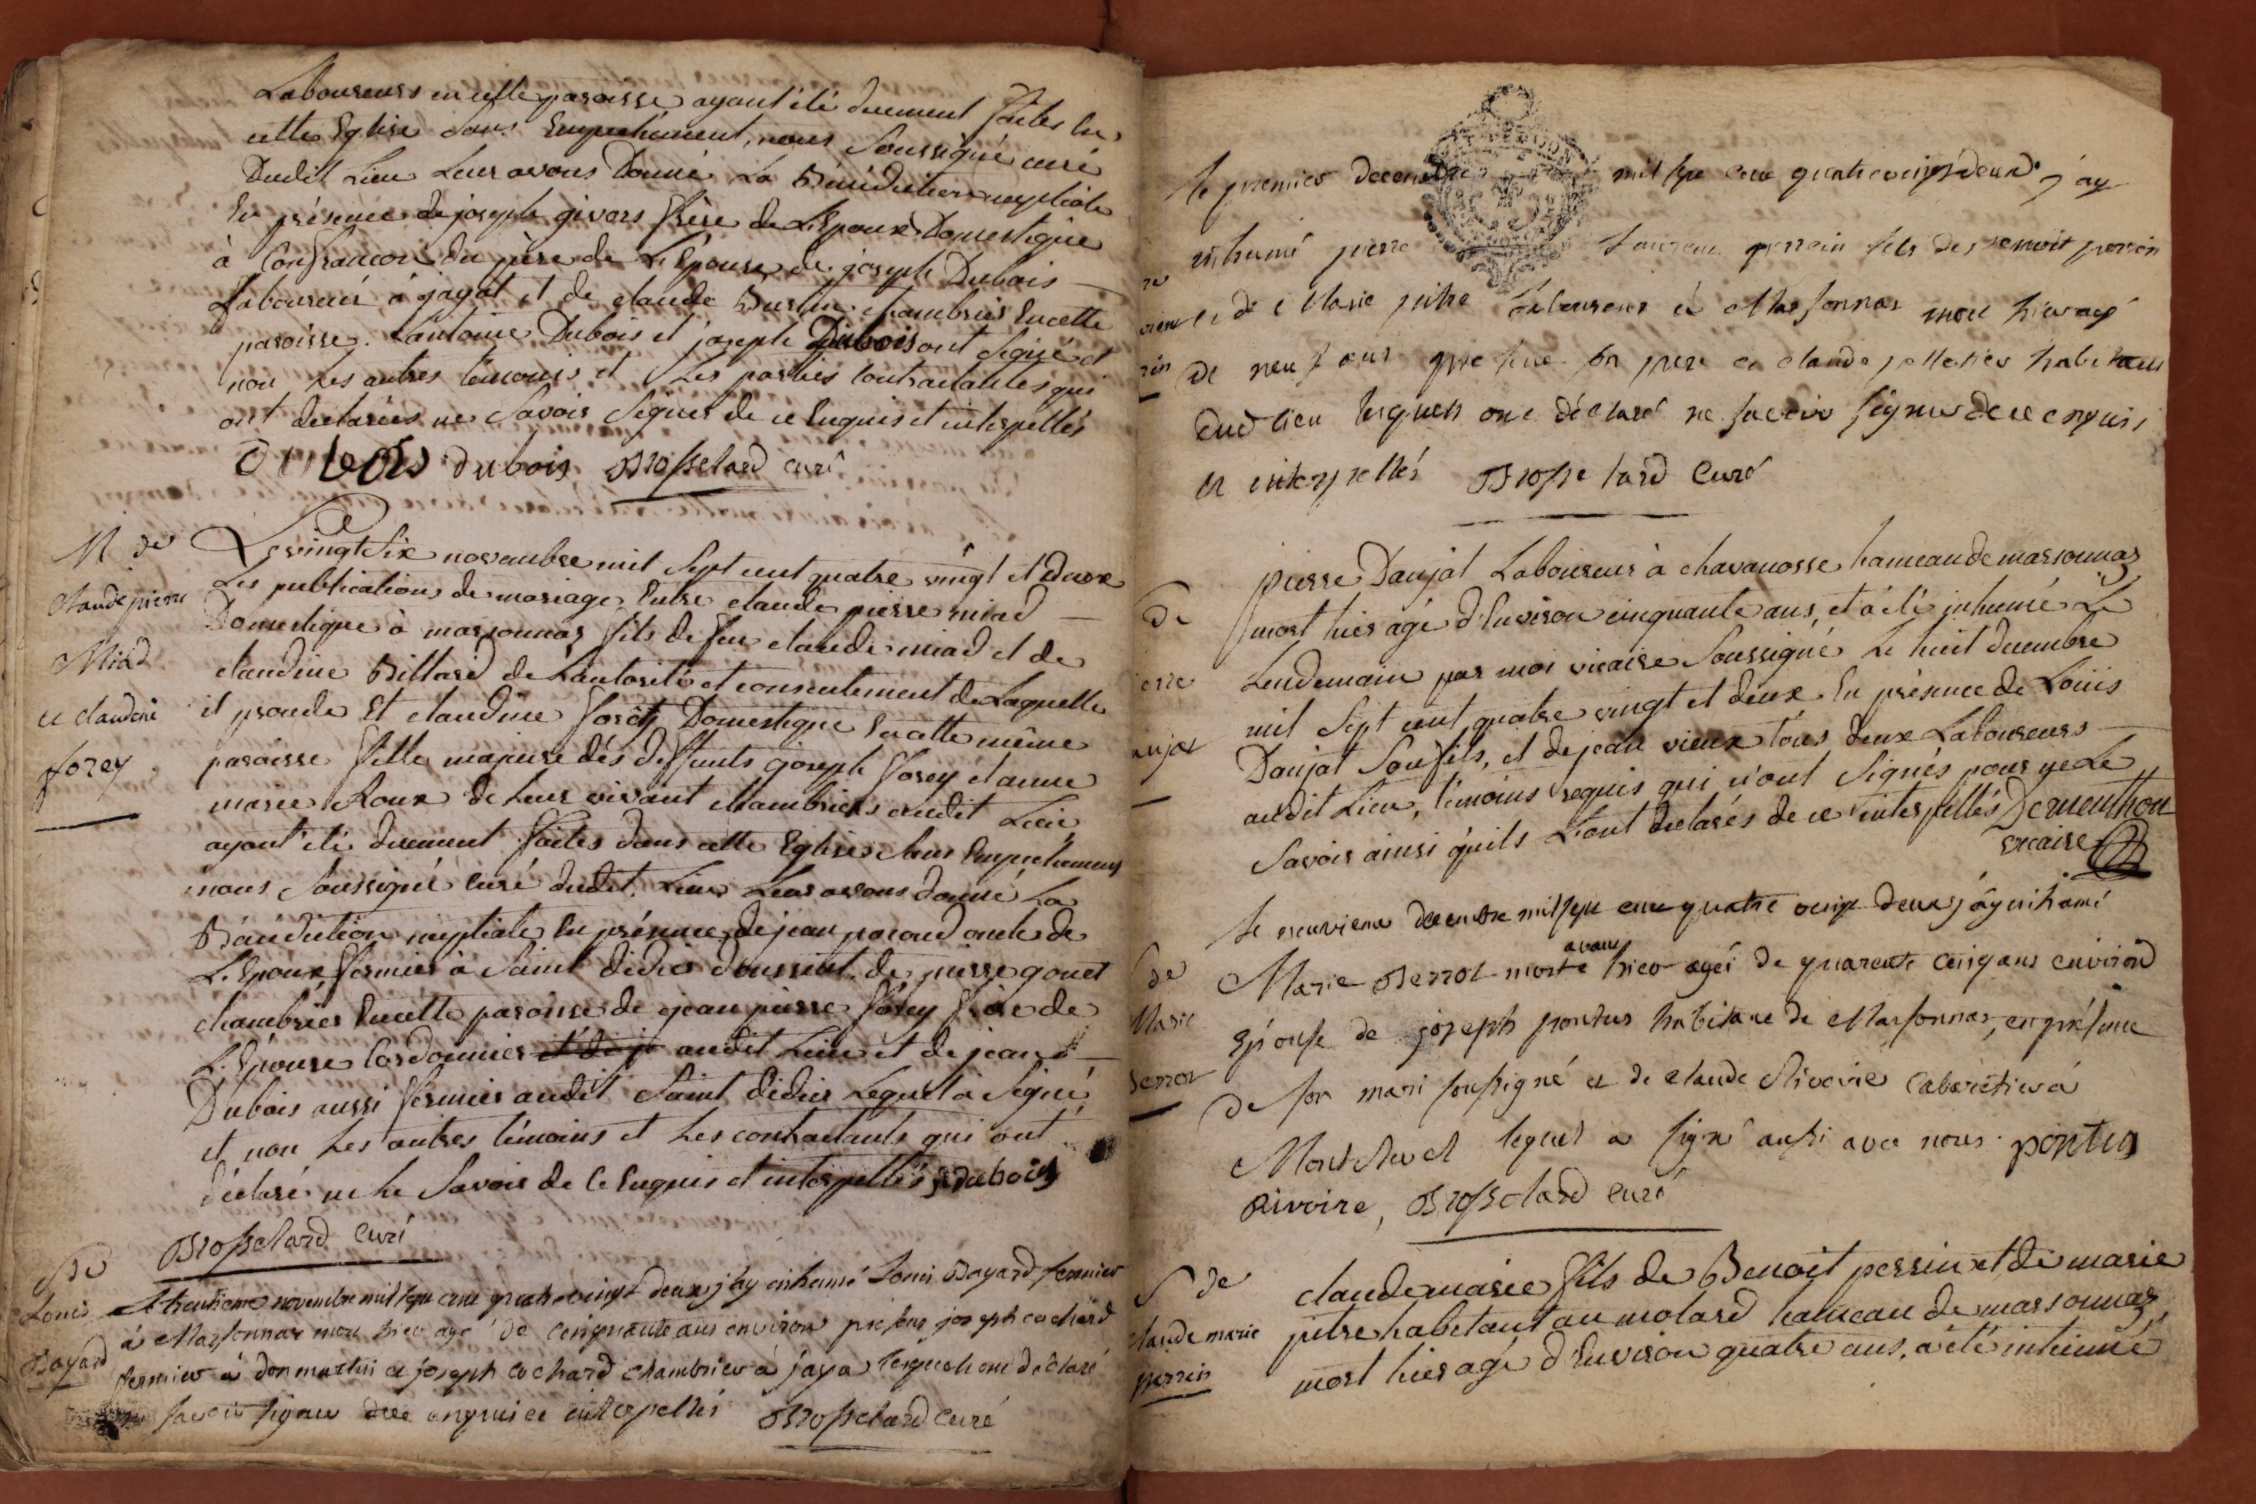 Laboureurs en cette paroisse ayant été duement faites en
cette Eglise sans Empechement, nous soussigné curé
Dudit Lieu Leur avons Donné La Bénédiction nuptiale
En présence de joseph givors frère de L'Epoux Domestique
à Confrancon du père de L'Epouse de joseph Dubois
Laboureur à jayat et de claude chambrier Encette
paroisse. Lantoine Dubois et joseph Dubois ont signé et
non Les autres temoins et Les parties contractantes qui
ont declarées ne savoir signer de ce Enquis et interpellés
dubois dubois Brosselard curé
M de
claude pierre
Miad
et claudine
forey
Le vingt six novembre mil sept cent quatre vingt et deux
Les publications de mariage Entre claude pierre miad
Domestique à marsonnas fils de feu claude miad et de
claudine Billard de Lautorité et consentement de Laquelle
il procede Et claudine forey Domestique Encette même
paroisse fille majeure dès deffunts joseph forey et anne
marie Roux de Leur vivant chambriers audit Lieu
ayant été duement faites dans cette Eglise sans Empechement
nous soussigné curé dudit Lieu Leur avons donné La
Bénédiction nuptiale En présence de jean oncle de
L'Epoux fermier à saint didier doussiat de pierre gouet
chambrier Encette paroisse de jean pierre forey frère de
L'Epouse Cordonnier et de j audit Lieu et de jean
Dubois aussi fermier audit saint didier Lequel a signé
et non Les autres témoins et Les contractants qui ont
déclaré ne Le savoir de ce Enquis et interpellés J Dubois
Brosselard curé
S de
Louis
Bayard
Le trentieme novembre mil sept cent quatre vingt deux j'ay inhumé Louis Bayard fermier
à Marsonnas mort hier agé de cinquante ans environ presens joseph cochard
fermier à donmartin et joseph cochard chambrier à jaya lesquels ont déclaré
ne savoir signer de ce enquis et interpellés Brosselard curé
re
rin
le premier decembre mil sept cent quatre vingt deux j'ay
inhumé pierre perrain fils de benoit perrin
et de Marie pitre Laboureur à Marsonnas mort hier agé
de neuf ans presens son pere et claude pelletier habitans
dud lieu lesquels ont déclaré ne savoir signer de ce enquis
et interpellés Brosselard Curé
de
ierre
aujat
pierre Daujat Laboureur à chavanosse hameau de marsonnas
mort hier agé d'Environ cinquante ans, et a été inhumé Le
Lendemain par moi vicaire soussigné Le huit decembre
mil sept cent quatre vingt et deux. En présence de Loüis
Daujat son fils, et de jean vieux tous deux Laboureurs
audit Lieu, témoins requis qui n'ont signés pour ne Le
savoir ainsi qu'ils L'ont declarés de ce interpellés Dementhon
vicaire
de
Marie
Berrot
Le neuvieme decembre mil sept cent quatre vingt deux j'ay inhumé
Marie Berrot morte avant hier agée de quarente cinq ans environ
Epouse de joseph pontus habitant de Marsonnas, en présence
de son mari soussigné et de claude Rivoire Cabaretier à
Montrevel lequel a signé aussi avec nous. pontus
Rivoire, Brosselard curé
S de
claude marie
perrin
claude marie fils de Benoit perrin et de marie
pitre habitant au molard hameau de marsonnas,
mort hier agé d'Environ quatre ans, a été inhumé